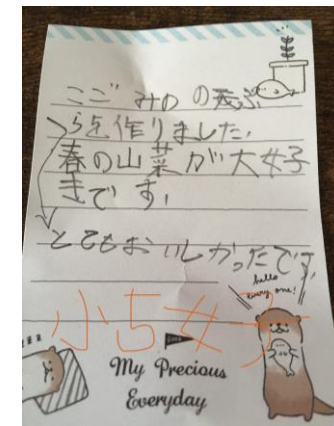 こごみの の天ぷ
らを作りました。
春の山菜が大好
きです。
とてもおいしかったです。
hello
every one!
My Precious
Everyday